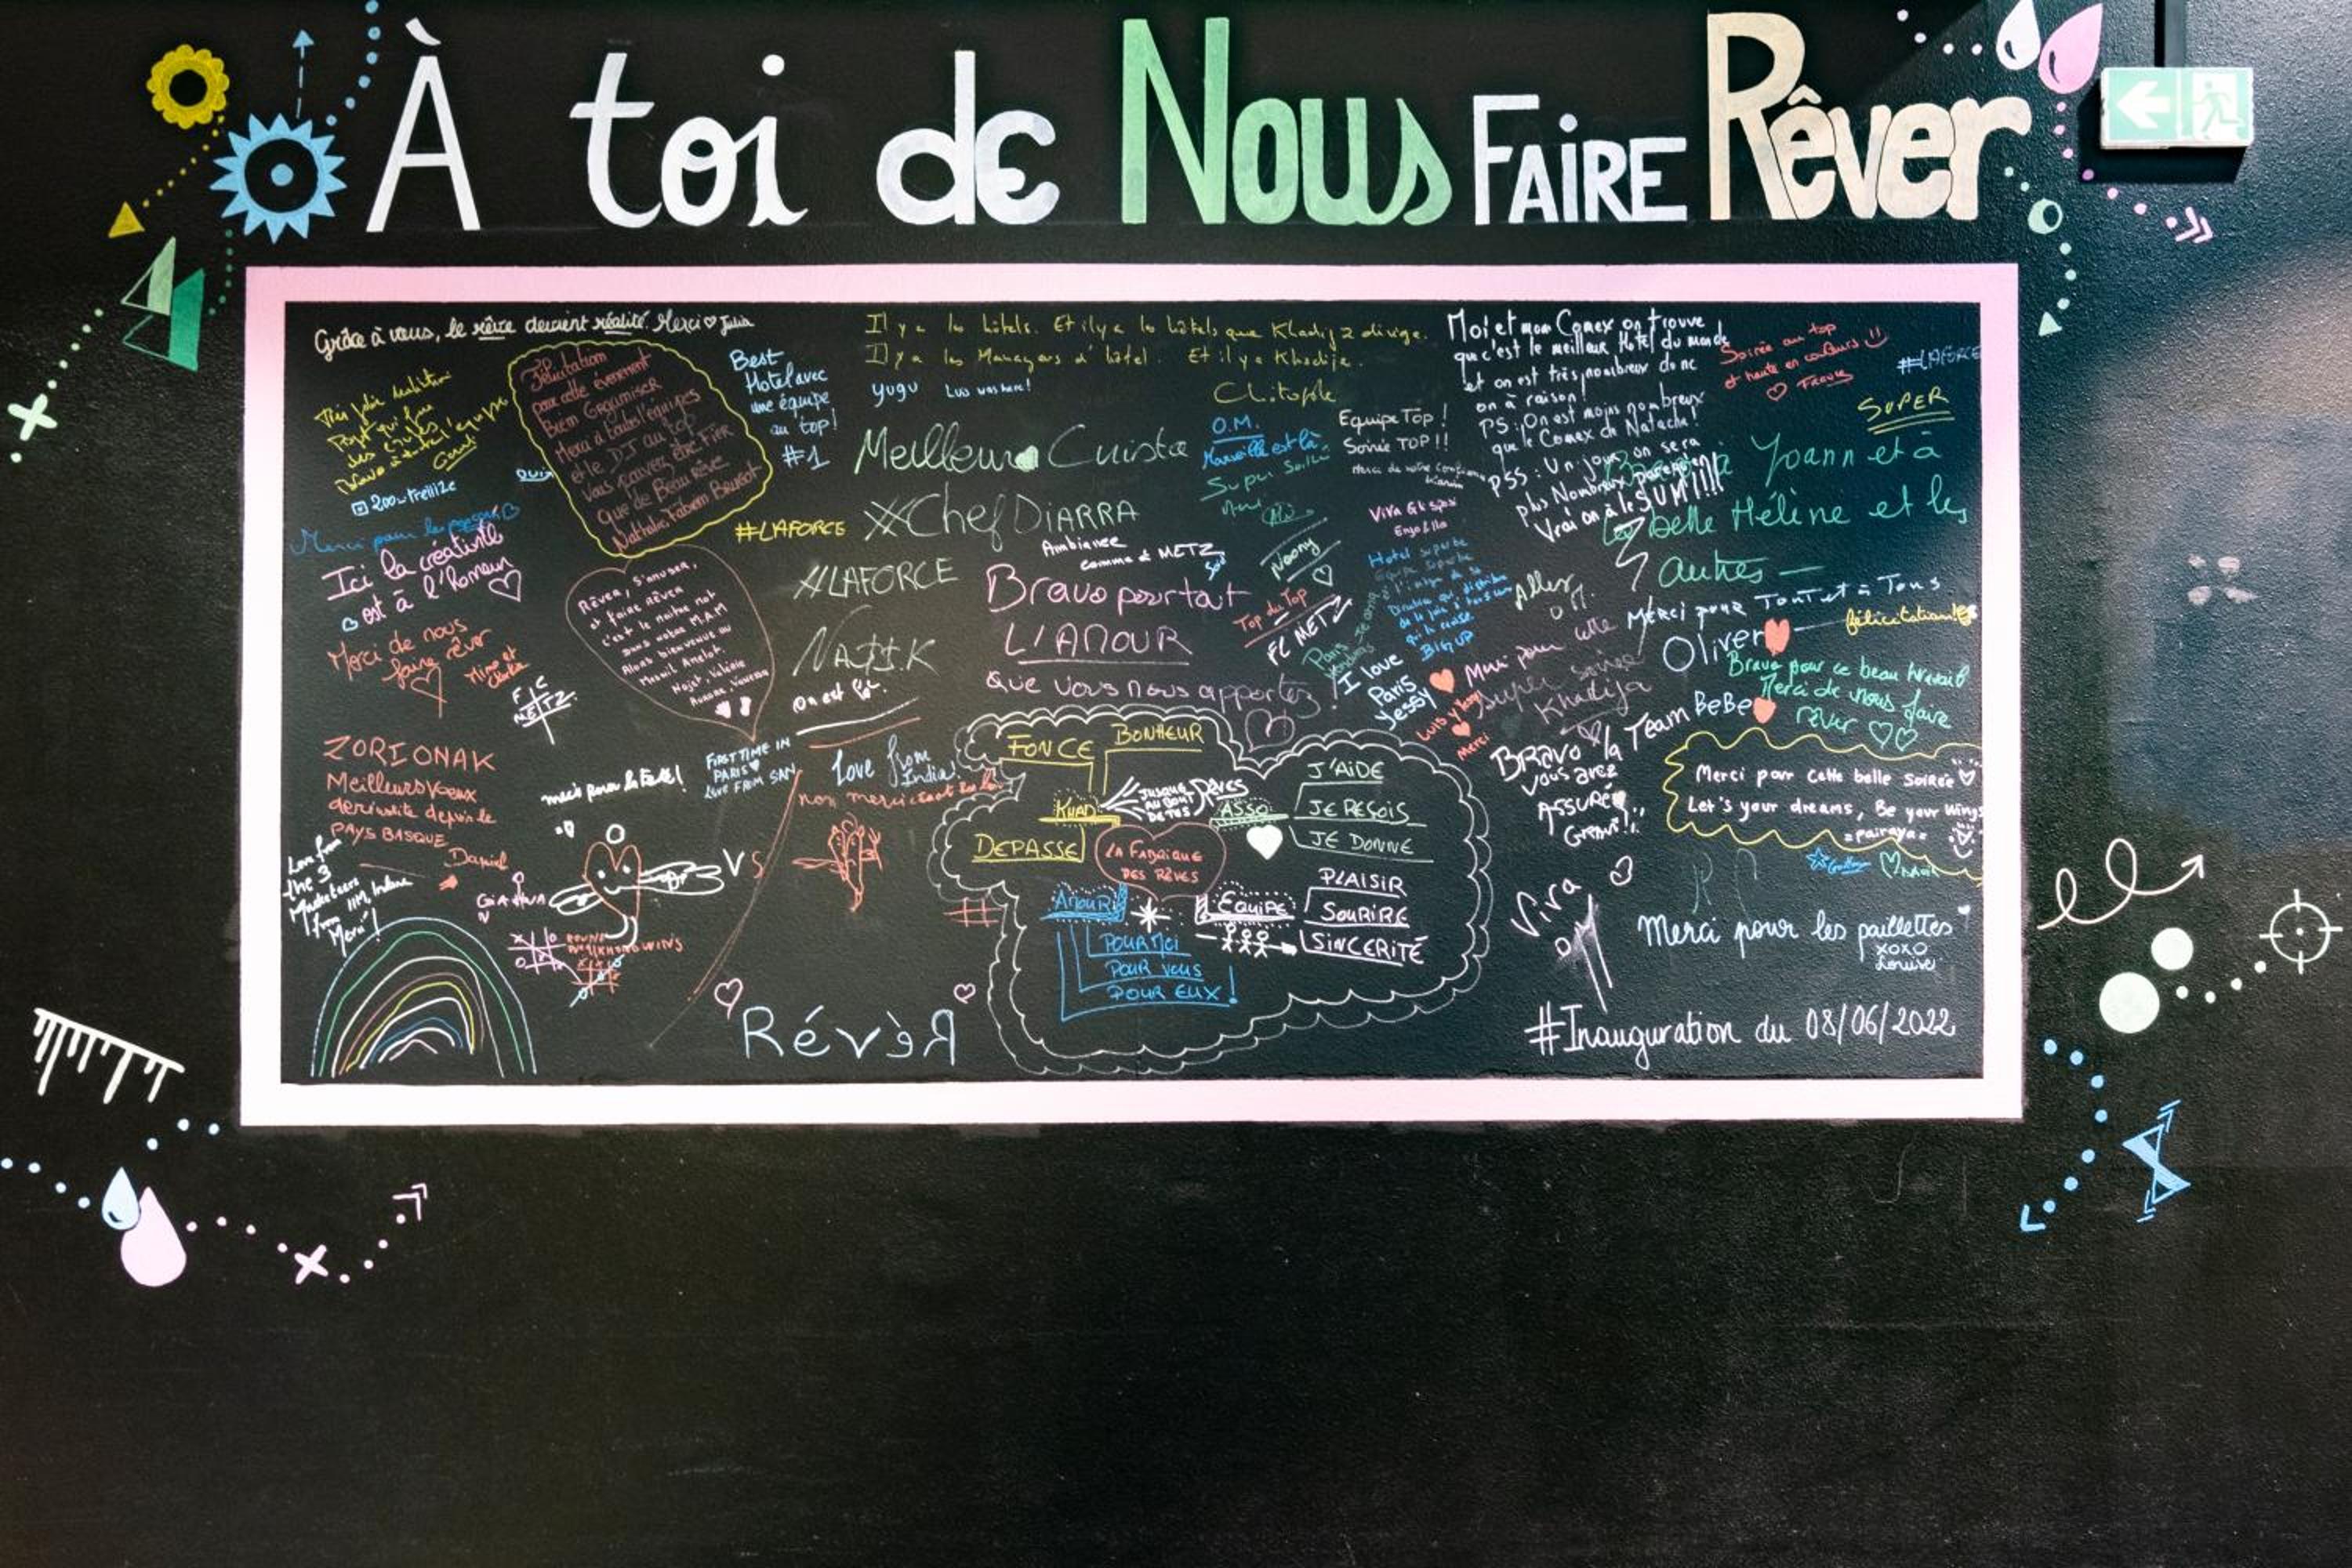 À toi de Nous FAIRE Rêver
Grâce à vous, le rêve devient réalité. Merci ♡ Julia
Très jolie
Bravo à toute l'équipe
200
OUIX
Merci pour
Ici la créativité
est à l'honneur
Merci de nous
faire rêver
Mime et
F.C
METZ
Félicitation
pour cette évenement
Bien Organiser
Merci à touts l'équipes
et le DJ au top
Vous pouvez être FIER
que de Beau rêve
Nathalie, Fabien
Best
Hotel avec
une équipe
au top!
#1
#LAFORCE
Rêver, S'amuser,
et faire rêver
c'est le maitre mot
dans notre M.A.M
Alors bienvenue au
Mesnil Amelot.
Najet, Valérie
Vanessa
Il y a les hôtels. Et il y a les hôtels que Khadija dirige.
Il y a les Managers d'hôtel. Et il y a Khadija.
yugu
Luis was here!
Meilleur Cuisto
Chef DIARRA
#LAFORCE
on est là.
Ambiance
comme à METZ
Bravo pour tout
L'AMOUR
que vous nous apportez!
O.M.
Marseille est là
Super Soirée
Noony
Top du Top
FC METZ
Equipe TOP!
Soirée TOP!!
Merci de votre confiance
Viva
Hotel superbe
Equipe superbe
BIG UP
I love
Paris
Yessy
Merci
Moi et mon Comex on trouve
que c'est le meilleur Hotel du monde
et on est très nombreux donc
on à raison!
PS: On est moins nombreux
que le Comex de Natacha!
PSS: Un jour on sera
plus Nombreux
Vrai on à le SUM!!!!
Soirée au top
et haute en couleurs!!
♡ Franck
#LAFORCE
SUPER
à Yoann et à
la belle Hélène et les
autres —
Allez
OM
Merci pour cette
super soirée
Khadija
Merci pour TOUT et à Tous
Oliver
Félicitation!
Bravo pour ce beau travail
Merci de nous faire
rêver ♡♡
BRAVO à la TEAM BeBe
VOUS AVEZ
ASSURÉ
Merci pour cette belle soirée ♡
Let's your dreams, Be your Wings
=pairaya=
ZORIONAK
Meilleurs Voeux
de réussite depuis le
PAYS BASQUE
Daniel
Love from
the 3
from IIM, Indore
Merci!
merci pour la fête!
FIRST TIME IN
PARIS ♥
LOVE FROM SAN
Love from
India!
non merci c'était
VS
RÊVER
FONCE
BONHEUR
KHAD
JUSQU'AU BOUT
DE TES RÊVES
ASSO
J'AIDE
JE REÇOIS
JE DONNE
DEPASSE
LA FABRIQUE
DES RÊVES
AMOUR
POUR MOI
POUR VOUS
POUR EUX!
EQUIPE
PLAISIR
SOURIRE
SINCERITÉ
RévèR
Viva
OM
Merci pour les paillettes
xoxo
Louise
#Inauguration du 08/06/2022